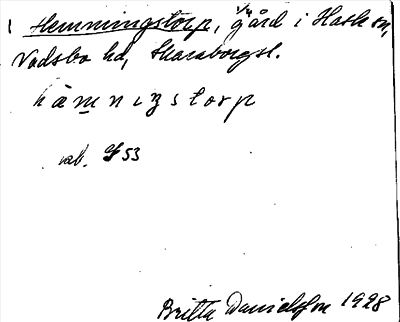 Hemmingstorp, 1/4 gård i Hasle sn,
Vadsbo hd, Skaraborgsl.
hämnıŋstorp
ab. G 53
Britta Danielsson 1928